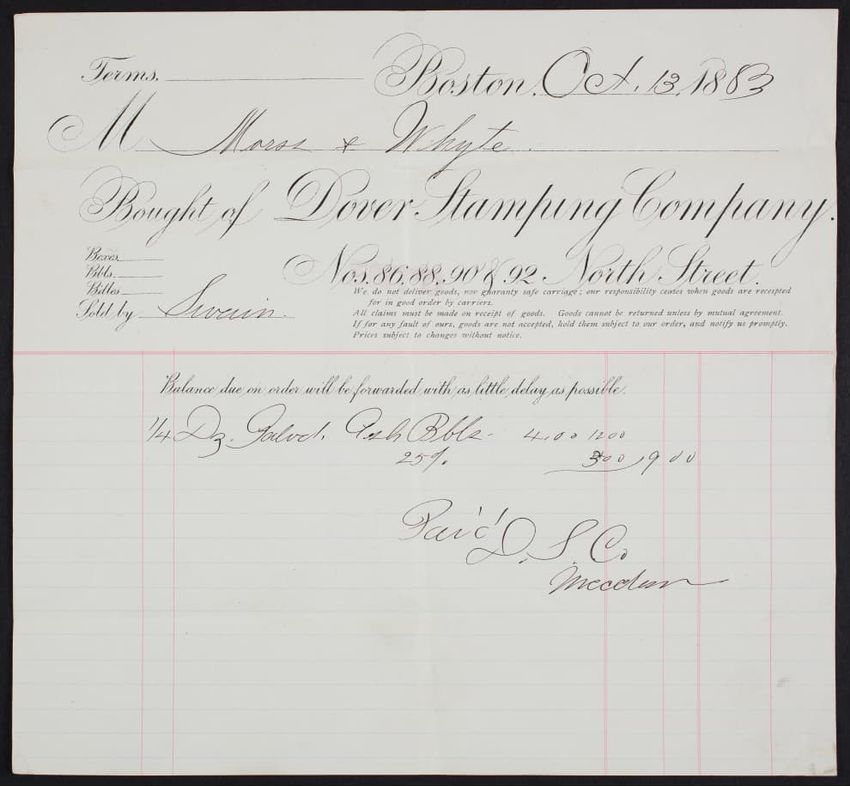 Terms. Boston, Oct. 13, 1883
M Morss & Whyte
Bought of Dover Stamping Company.
Nos. 86, 88, 90 & 92 North Street.
Boxes
Bbls.
Bdles
Sold by Swain.
We do not deliver goods, nor guaranty safe carriage; our responsibility ceases when goods are receipted
for in good order by carriers.
All claims must be made on receipt of goods. Goods cannot be returned unless by mutual agreement.
If for any fault of ours, goods are not accepted, hold them subject to our order, and notify us promptly.
Prices subject to changes without notice.
Balance due on order will be forwarded with as little delay as possible.
1/4 Dz. Galvd. Ash Bbls. 4.00 12 00
25% 3 00 9 00
Pai'd
D. S. Co